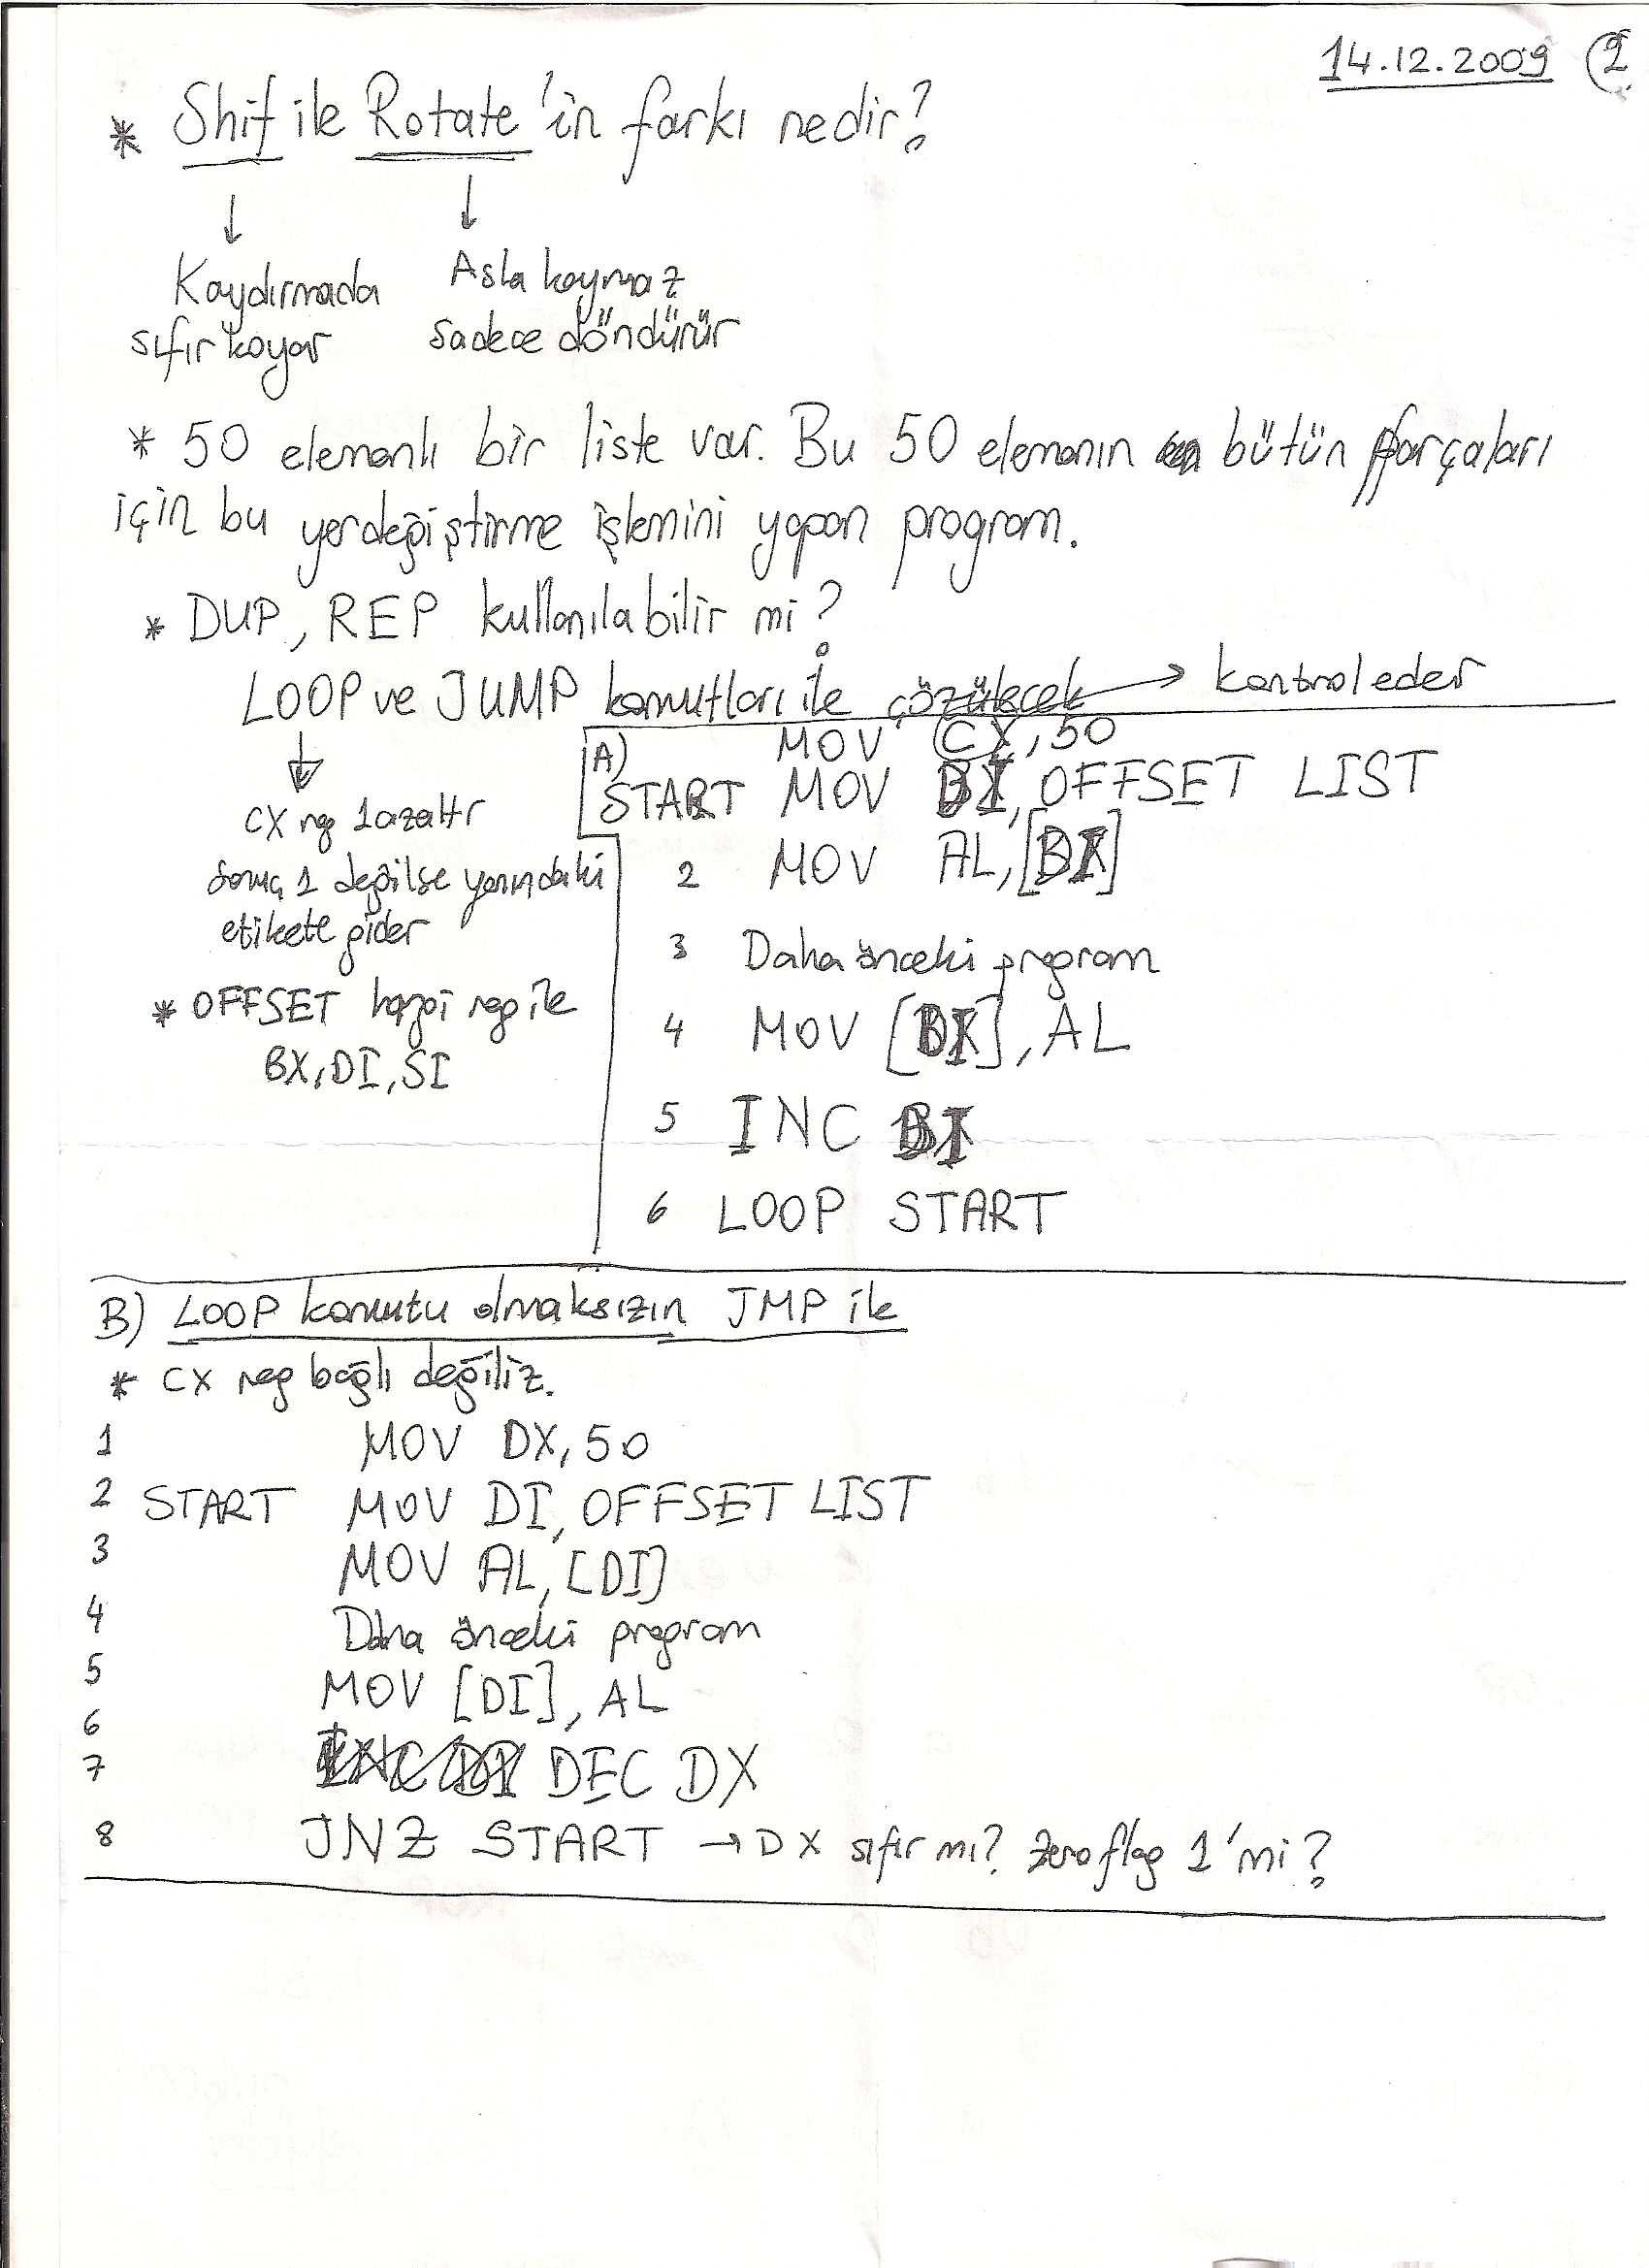 14.12.2009 2
* Shif ile Rotate'in farkı nedir?
↓ ↓
Kaydırmada Asla kaymaz
sıfır koyar sadece döndürür
* 50 elemanlı bir liste var. Bu 50 elemanın bütün parçaları
için bu yerdeğiştirme işlemini yapan program.
* DUP, REP kullanılabilir mi?
LOOP ve JUMP komutları ile çözülecek → kontrol eder
↓
CX reg 1 azaltır
sonuç 1 değilse yanındaki
etikete gider
* OFFSET hangi reg ile
BX, DI, SI
A) MOV CX, 50
START MOV DI, OFFSET LIST
2 MOV AL, [DI]
3 Daha önceki program
4 MOV [DI], AL
5 INC DI
6 LOOP START
B) LOOP komutu olmaksızın JMP ile
* CX reg bağlı değiliz.
1 MOV DX, 50
2 START MOV DI, OFFSET LIST
3 MOV AL, [DI]
4 Daha önceki program
5 MOV [DI], AL
6
7 INC DI DEC DX
8 JNZ START → DX sıfır mı? Zero flag 1'mi?